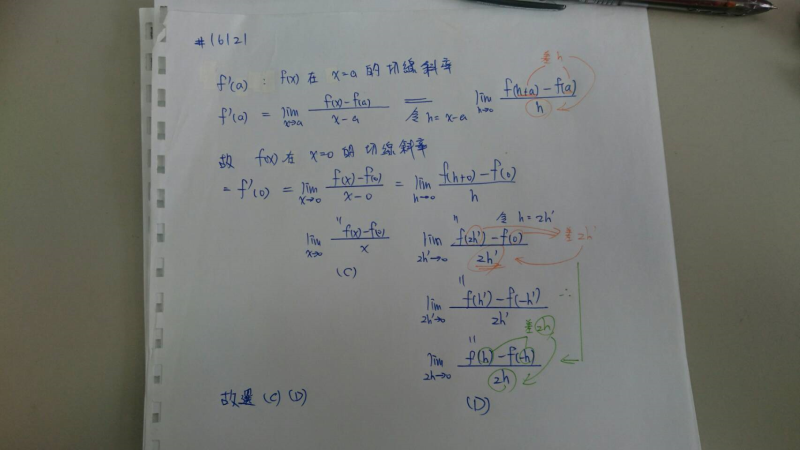 #16121
f'(a) : f(x) 在 x=a 的切線斜率
差h
f'(a) = lim x→a f(x)-f(a) / x-a = 令 h=x-a lim h→0 f(h+a)-f(a) / h
故 f(x) 在 x=0 的切線斜率
= f'(0) = lim x→0 f(x)-f(0) / x-0 = lim h→0 f(h+0)-f(0) / h
令 h=2h'
lim x→0 f(x)-f(0) / x
lim 2h'→0 f(2h')-f(0) / 2h' 差2h'
(C)
lim 2h'→0 f(h')-f(-h') / 2h' ∴
差2h
lim 2h→0 f(h)-f(-h) / 2h
故選 (C) (D)
(D)